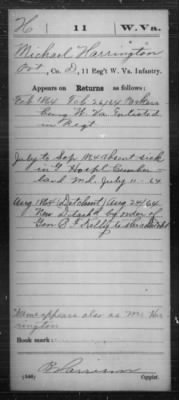 H | 11 | W. Va.
Michael Harrington
Pvt, Co. D, 11 Reg't W. Va. Infantry.
Appears on Returns as follows:
Feb 1864 Feb 26/64
W. Va. Enlisted
in Regt
July to Sep 1864 Absent sick
in G Hospl Cumber-
land Md. July 11 - 64
Aug 1864 Aug 24/64
by order of
Gen B F Kelly to
Name appears also as M. Har
rington
Book mark:
(546) Copyist.